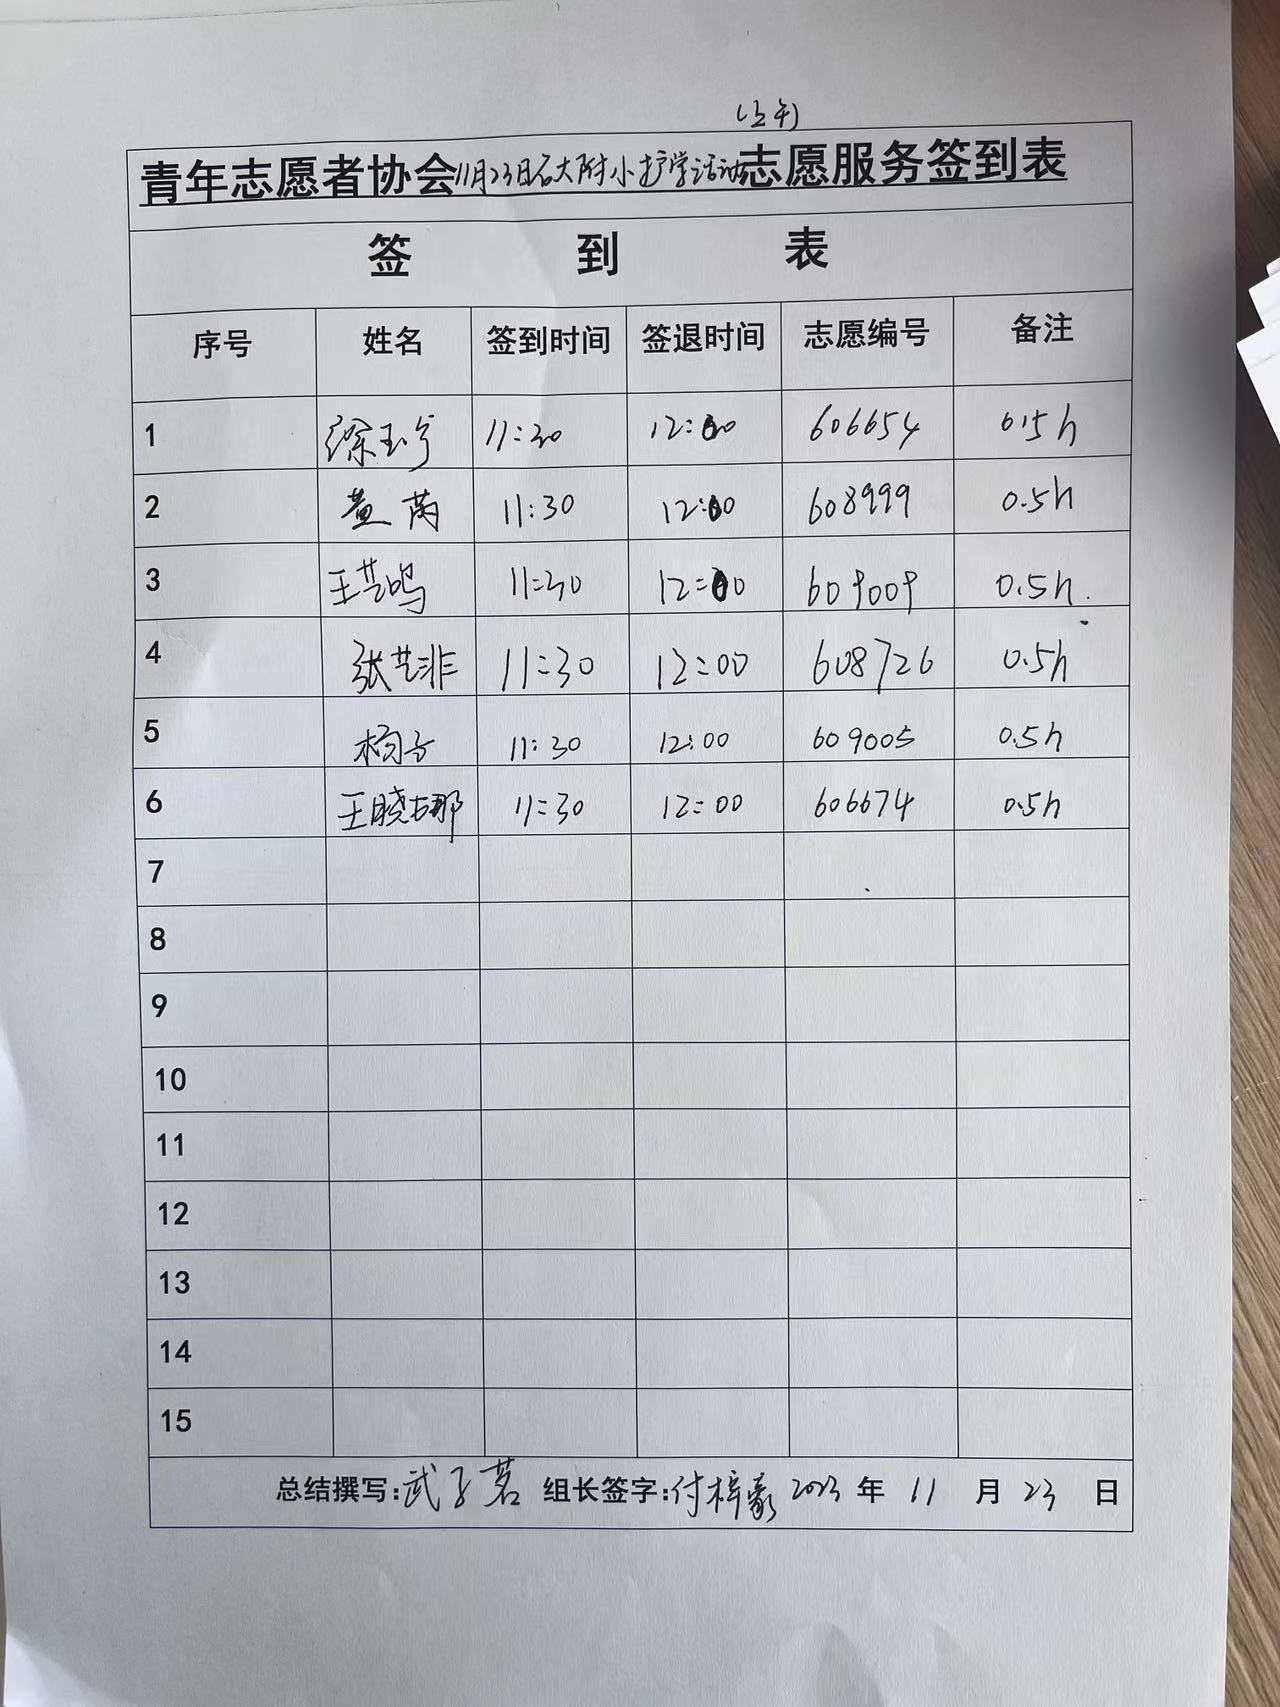 (上午)
青年志愿者协会11月23日石大附小护学活动志愿服务签到表
签 到 表
序号 姓名 签到时间 签退时间 志愿编号 备注
1 徐玉 11:30 12:00 606654 0.5h
2 11:30 12:00 608999 0.5h
3 王艺鸣 11:30 12:00 609009 0.5h.
4 张艺非 11:30 12:00 608726 0.5h
5 杨子 11:30 12:00 609005 0.5h
6 王晓娜 11:30 12:00 606674 0.5h
7
8
9
10
11
12
13
14
15
总结撰写:武子茗 组长签字:付梓豪 2023 年 11 月 23 日